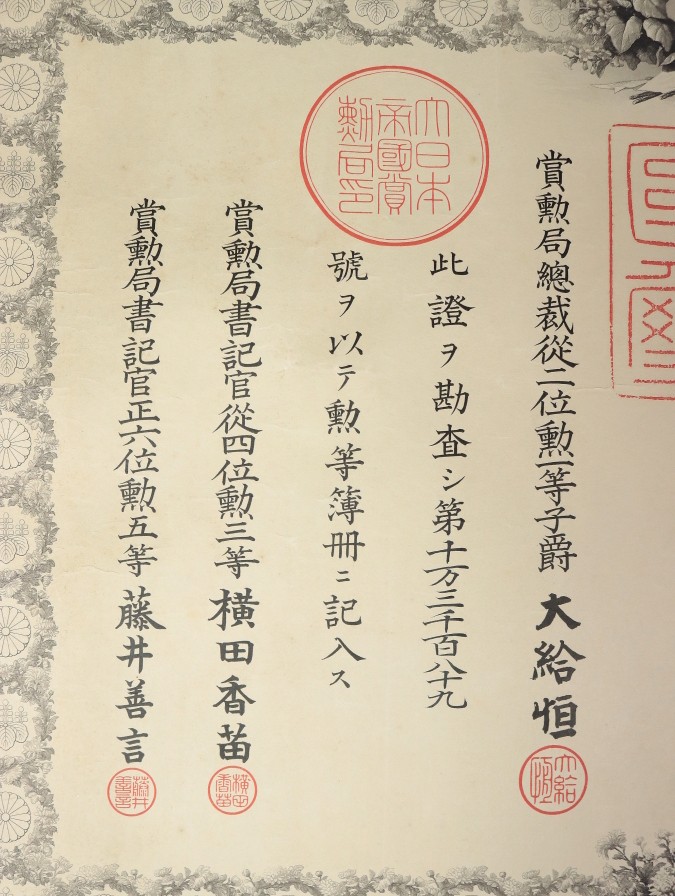 賞勲局總裁從二位勲一等子爵 大給恒
大給恒
大日本
帝國賞
勲局印
此證ヲ勘査シ第十万三千百八十九
號ヲ以テ勲等簿冊ニ記入ス
賞勲局書記官從四位勲三等 横田香苗
横田香苗
賞勲局書記官正六位勲五等 藤井善言
藤井善言